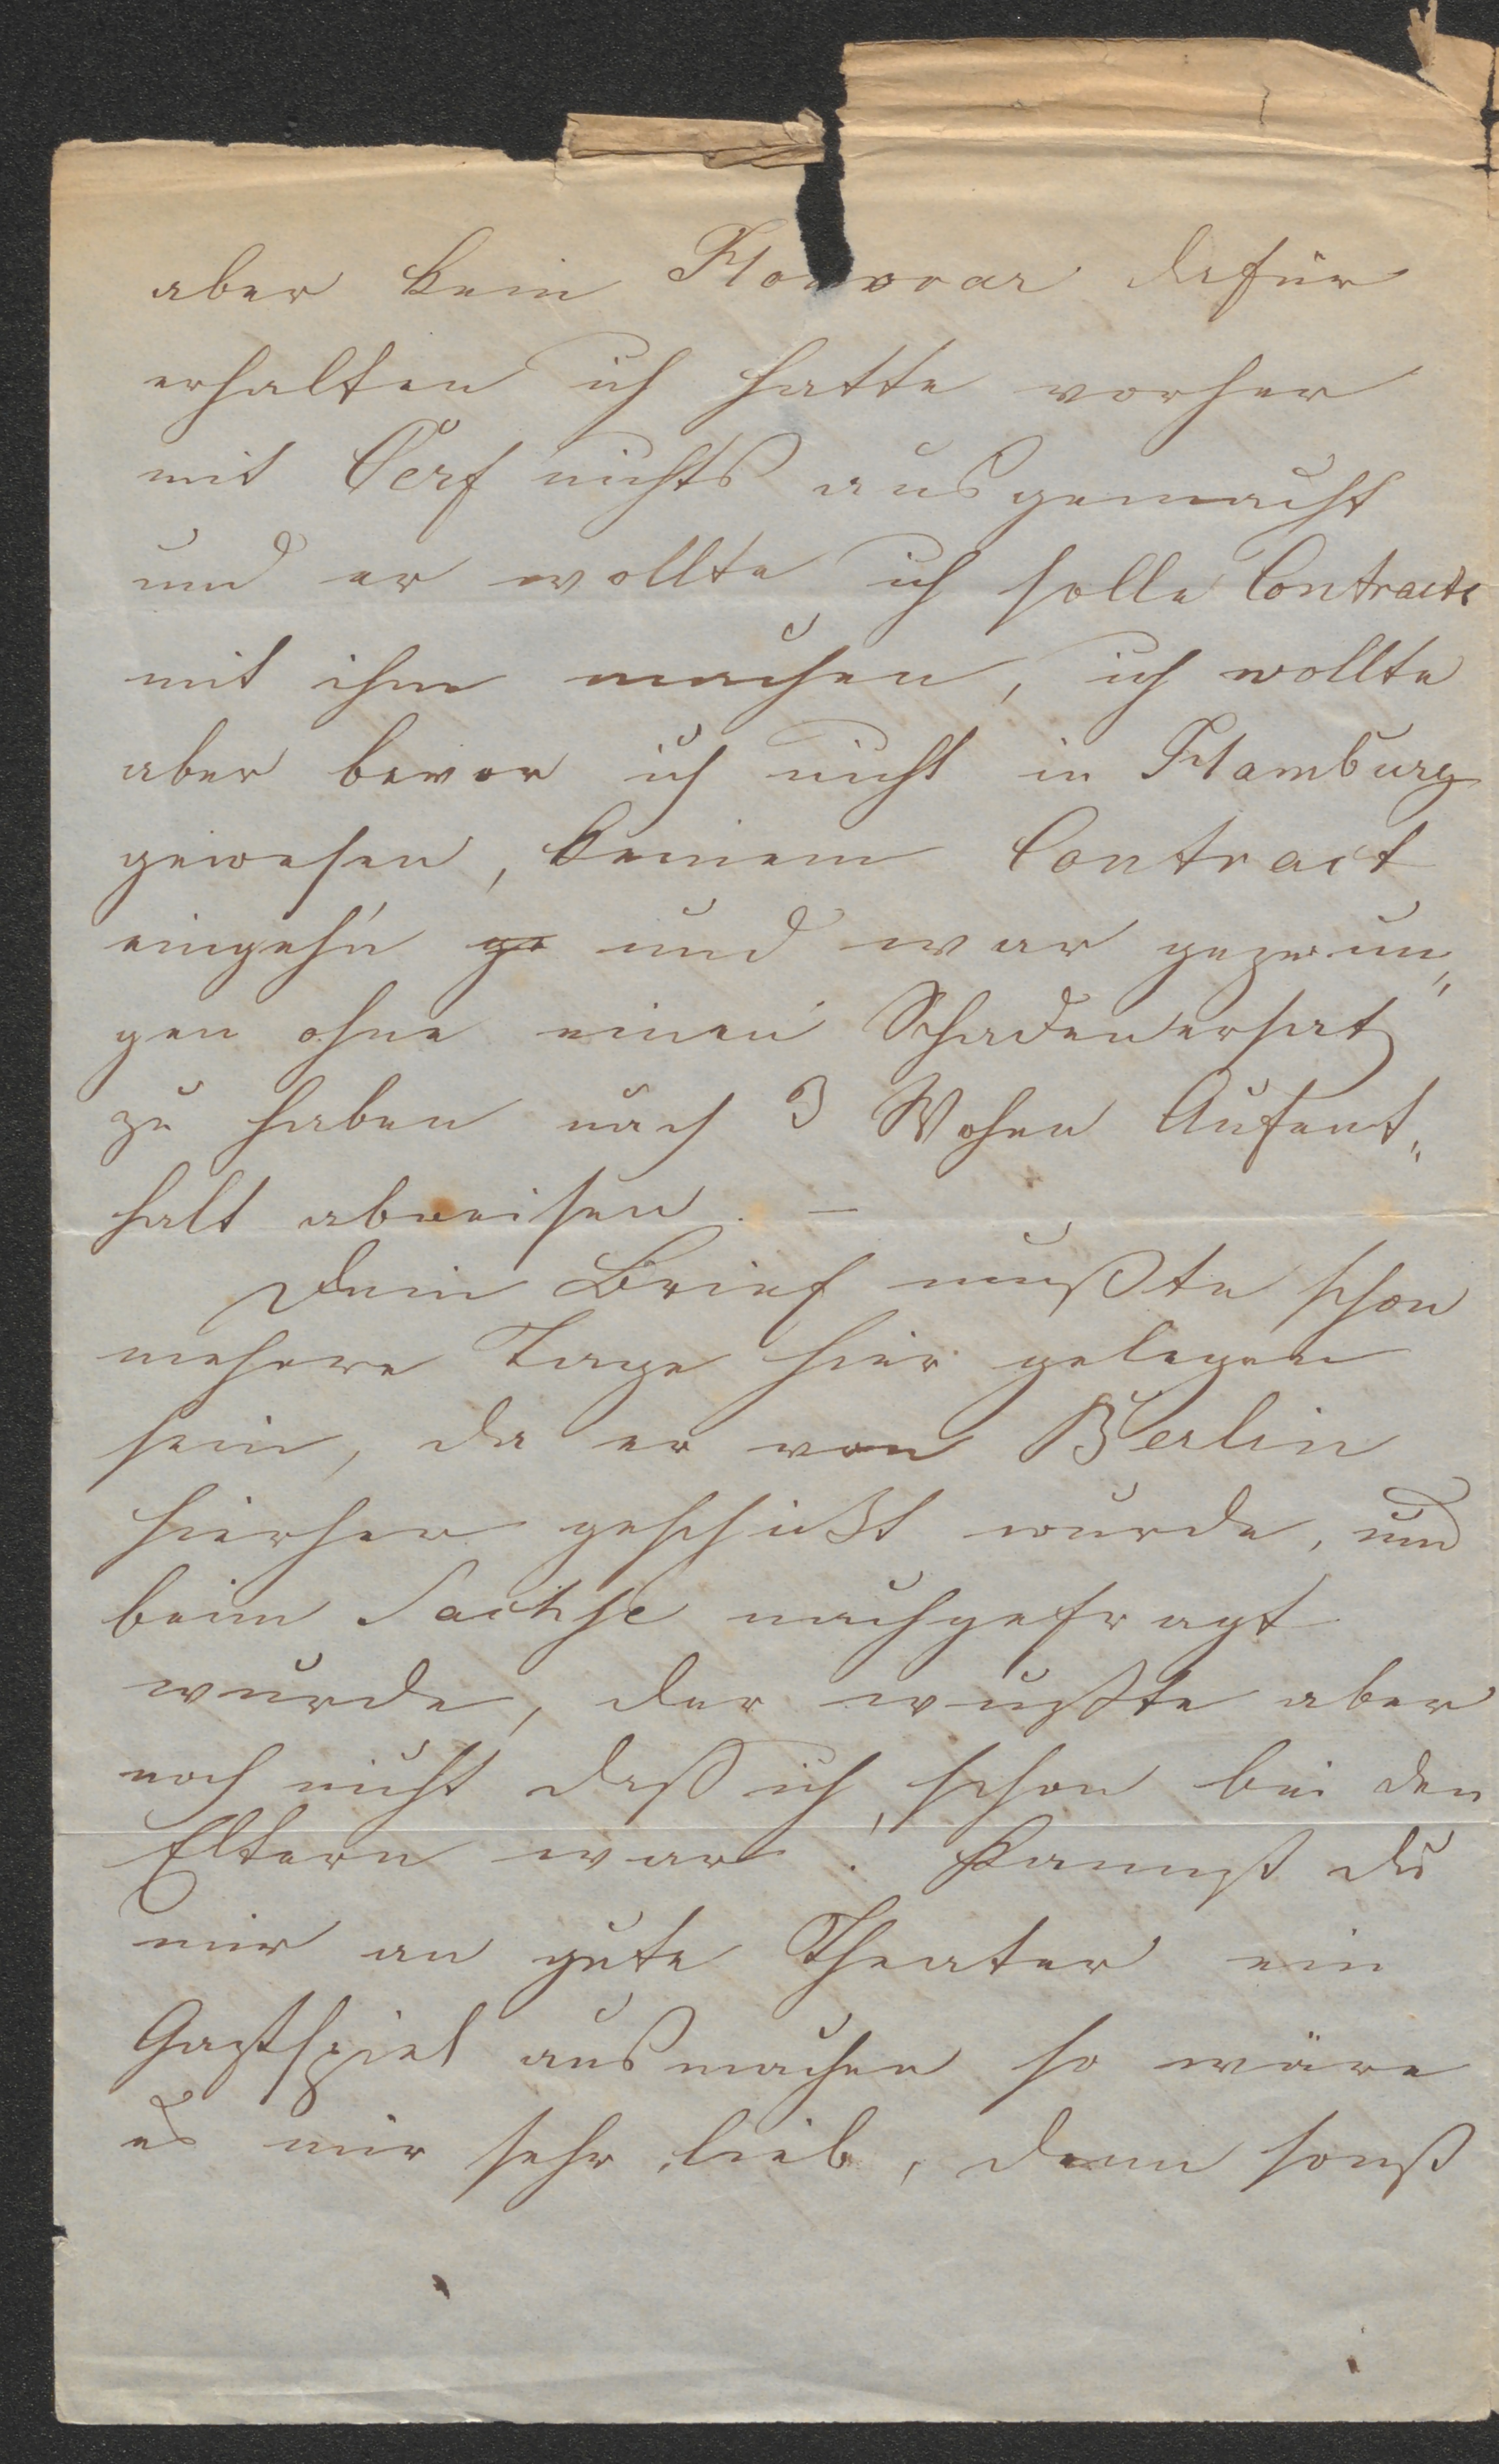 aber kein Honorar dafür
erhalten ich hatte vorher
mit Cerf nichts ausgemacht
und er wollte ich solle Contract
mit ihm machen, ich wollte
aber bevor ich nicht in Hamburg
gewesen, keinem Contract
eingeh'n ge und war gezwun„
gen ohne einen Schadenersatz
zu haben nach 3 Wohen Aufent„
halt abreisen. –
Dein Brief mußte schon
mehere Tage hier gelegen
sein, da er von Berlin
hierher geschickt wurde, und
beim Sachse nachgefragt
wurde, der wußte aber
noch nicht daß ich schon bei den
Eltern war. Kannst du
mir an gute Theater ein
Gastspiel ausmachen so wäre
es mir sehr lieb, denn sonst